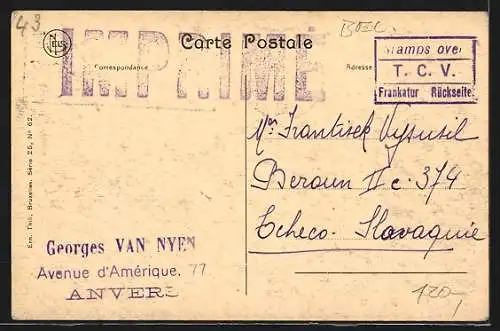 43
BELG.
IMPRIMÉ
Carte Postale
Correspondance
Adresse
Stamps over
T. C. V.
Frankatur Rückseite
Mr František Vysušil
Beroun II c. 374
Tcheco-Slovaquie
Ern. Thill, Bruxelles. Série 25, No 62.
Georges VAN NYEN
Avenue d'Amérique, 77
ANVERS
120,-